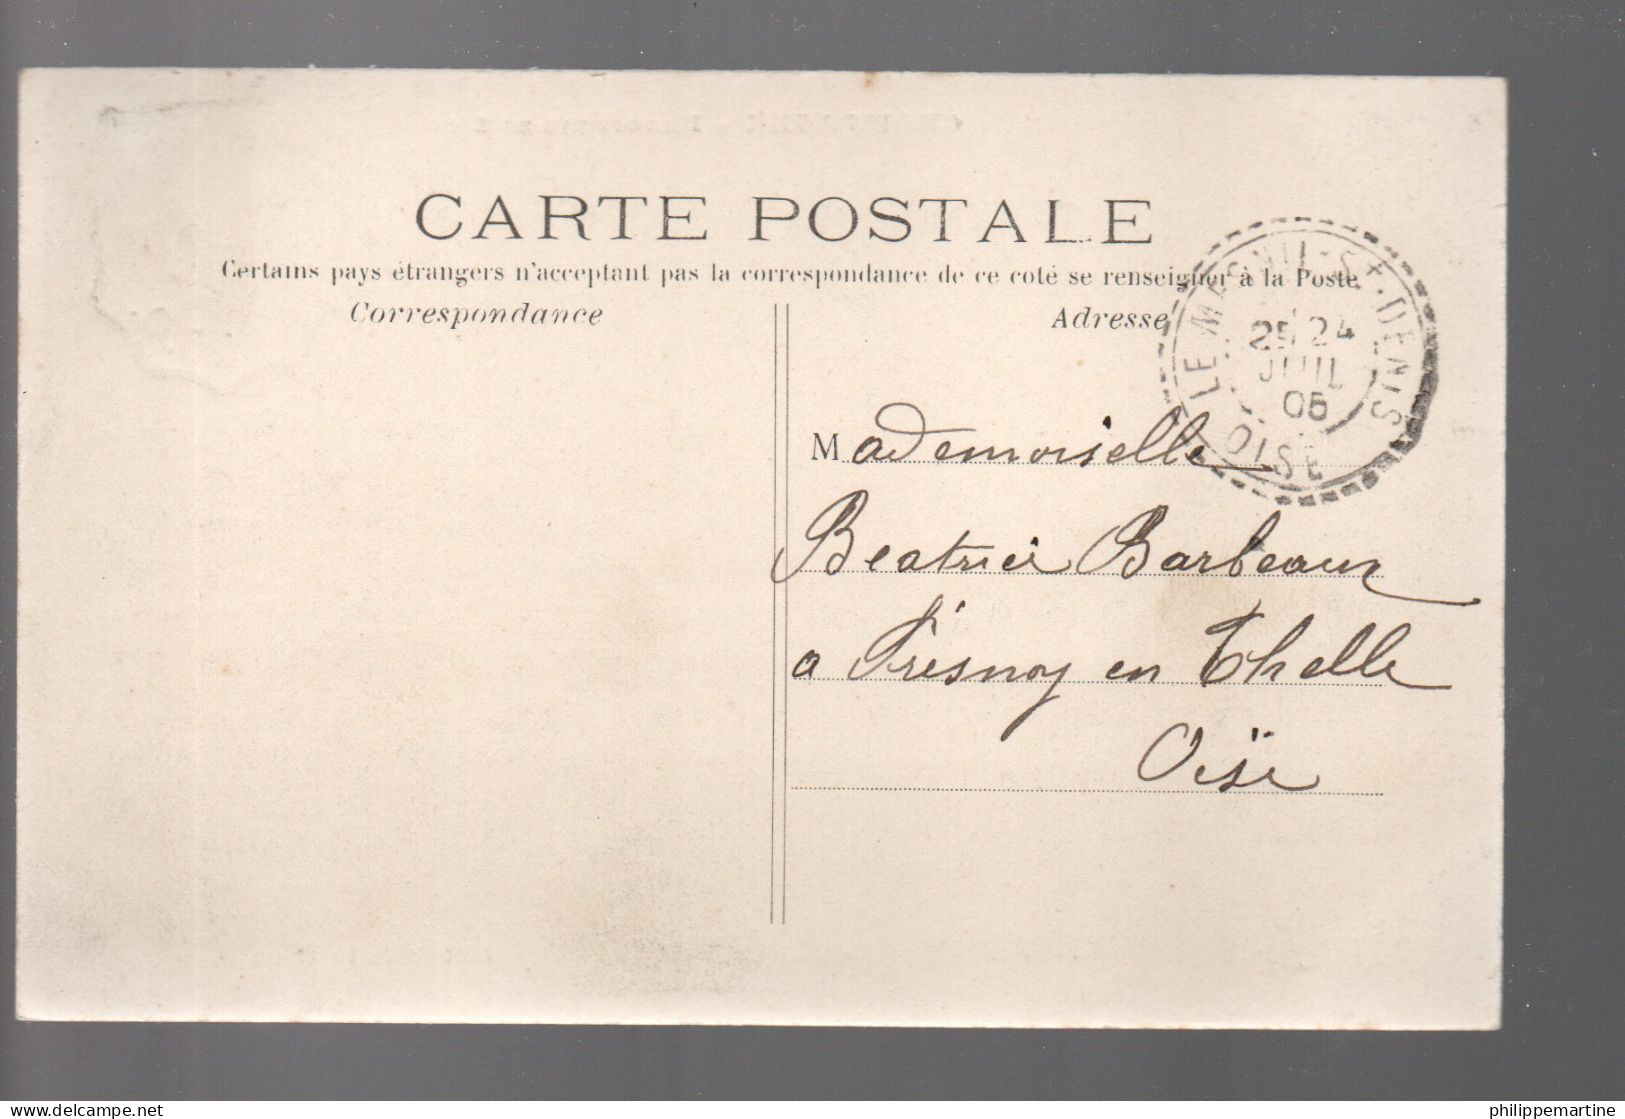 CARTE POSTALE
Certains pays étrangers n'acceptant pas la correspondance de ce coté se renseigner à la Poste
Correspondance
Adresse
LE MESNIL-St-DENIS
24
JUIL
05
OISE
Mademoiselle
Beatrice Barbeaux
a Fresnoy en Thelle
Oise
delcampe.net
philippemartine